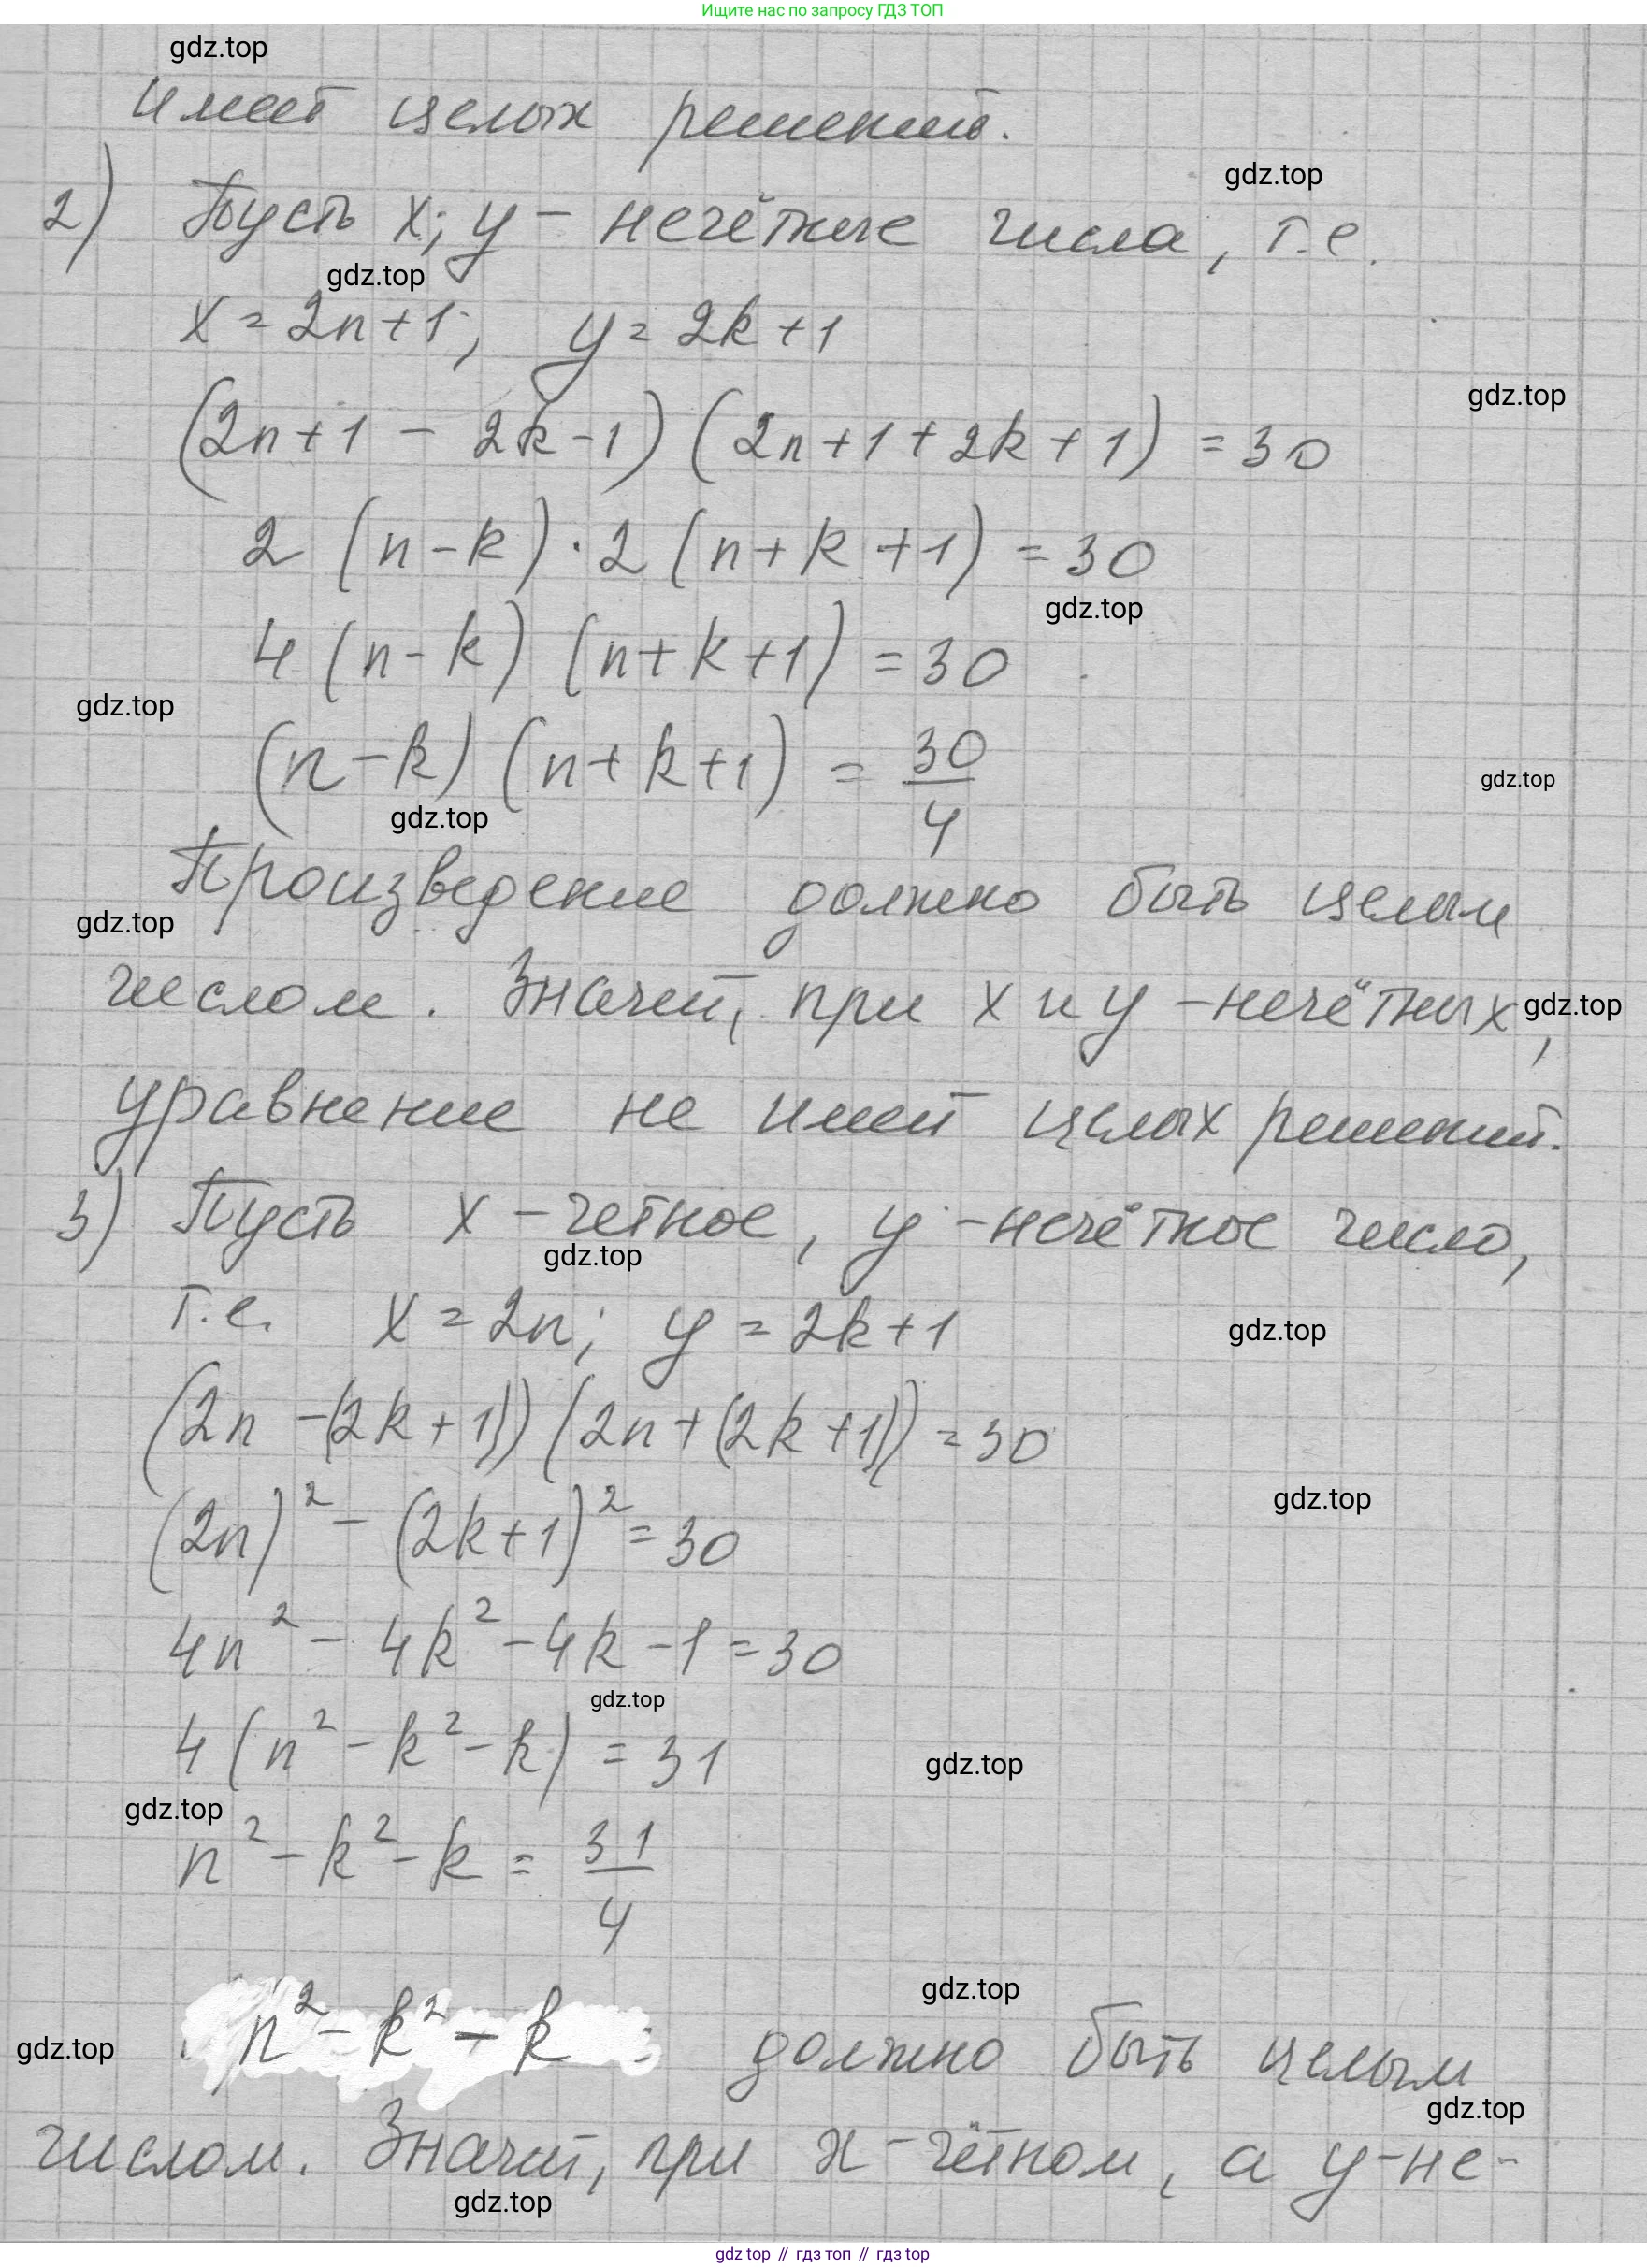 Ищите нас по запросу ГДЗ ТОП
gdz.top
имеет целых решений.
gdz.top
2) Пусть x; y - нечётные числа, т.е.
gdz.top
x = 2n+1; y = 2k+1
gdz.top
(2n+1 - 2k-1) (2n+1+2k+1) = 30
2 (n-k) · 2 (n+k+1) = 30
gdz.top
4 (n-k) (n+k+1) = 30
gdz.top
(n-k) (n+k+1) = 30/4
gdz.top
gdz.top
Произведение должно быть целым
gdz.top
числом. Значит, при x и y - нечётных,
gdz.top
уравнение не имеет целых решений.
3) Пусть x - четное, y - нечётное число,
gdz.top
т.е. x = 2n; y = 2k+1
gdz.top
(2n -(2k+1)) (2n+(2k+1)) = 30
gdz.top
(2n)² - (2k+1)² = 30
4n² - 4k² - 4k - 1 = 30
gdz.top
4 (n² - k² - k) = 31
gdz.top
gdz.top
n² - k² - k = 31/4
gdz.top
n² - k² - k должно быть целым
gdz.top
gdz.top
числом. Значит, при x - чётном, а y - не-
gdz.top
gdz top // гдз топ // гдз top